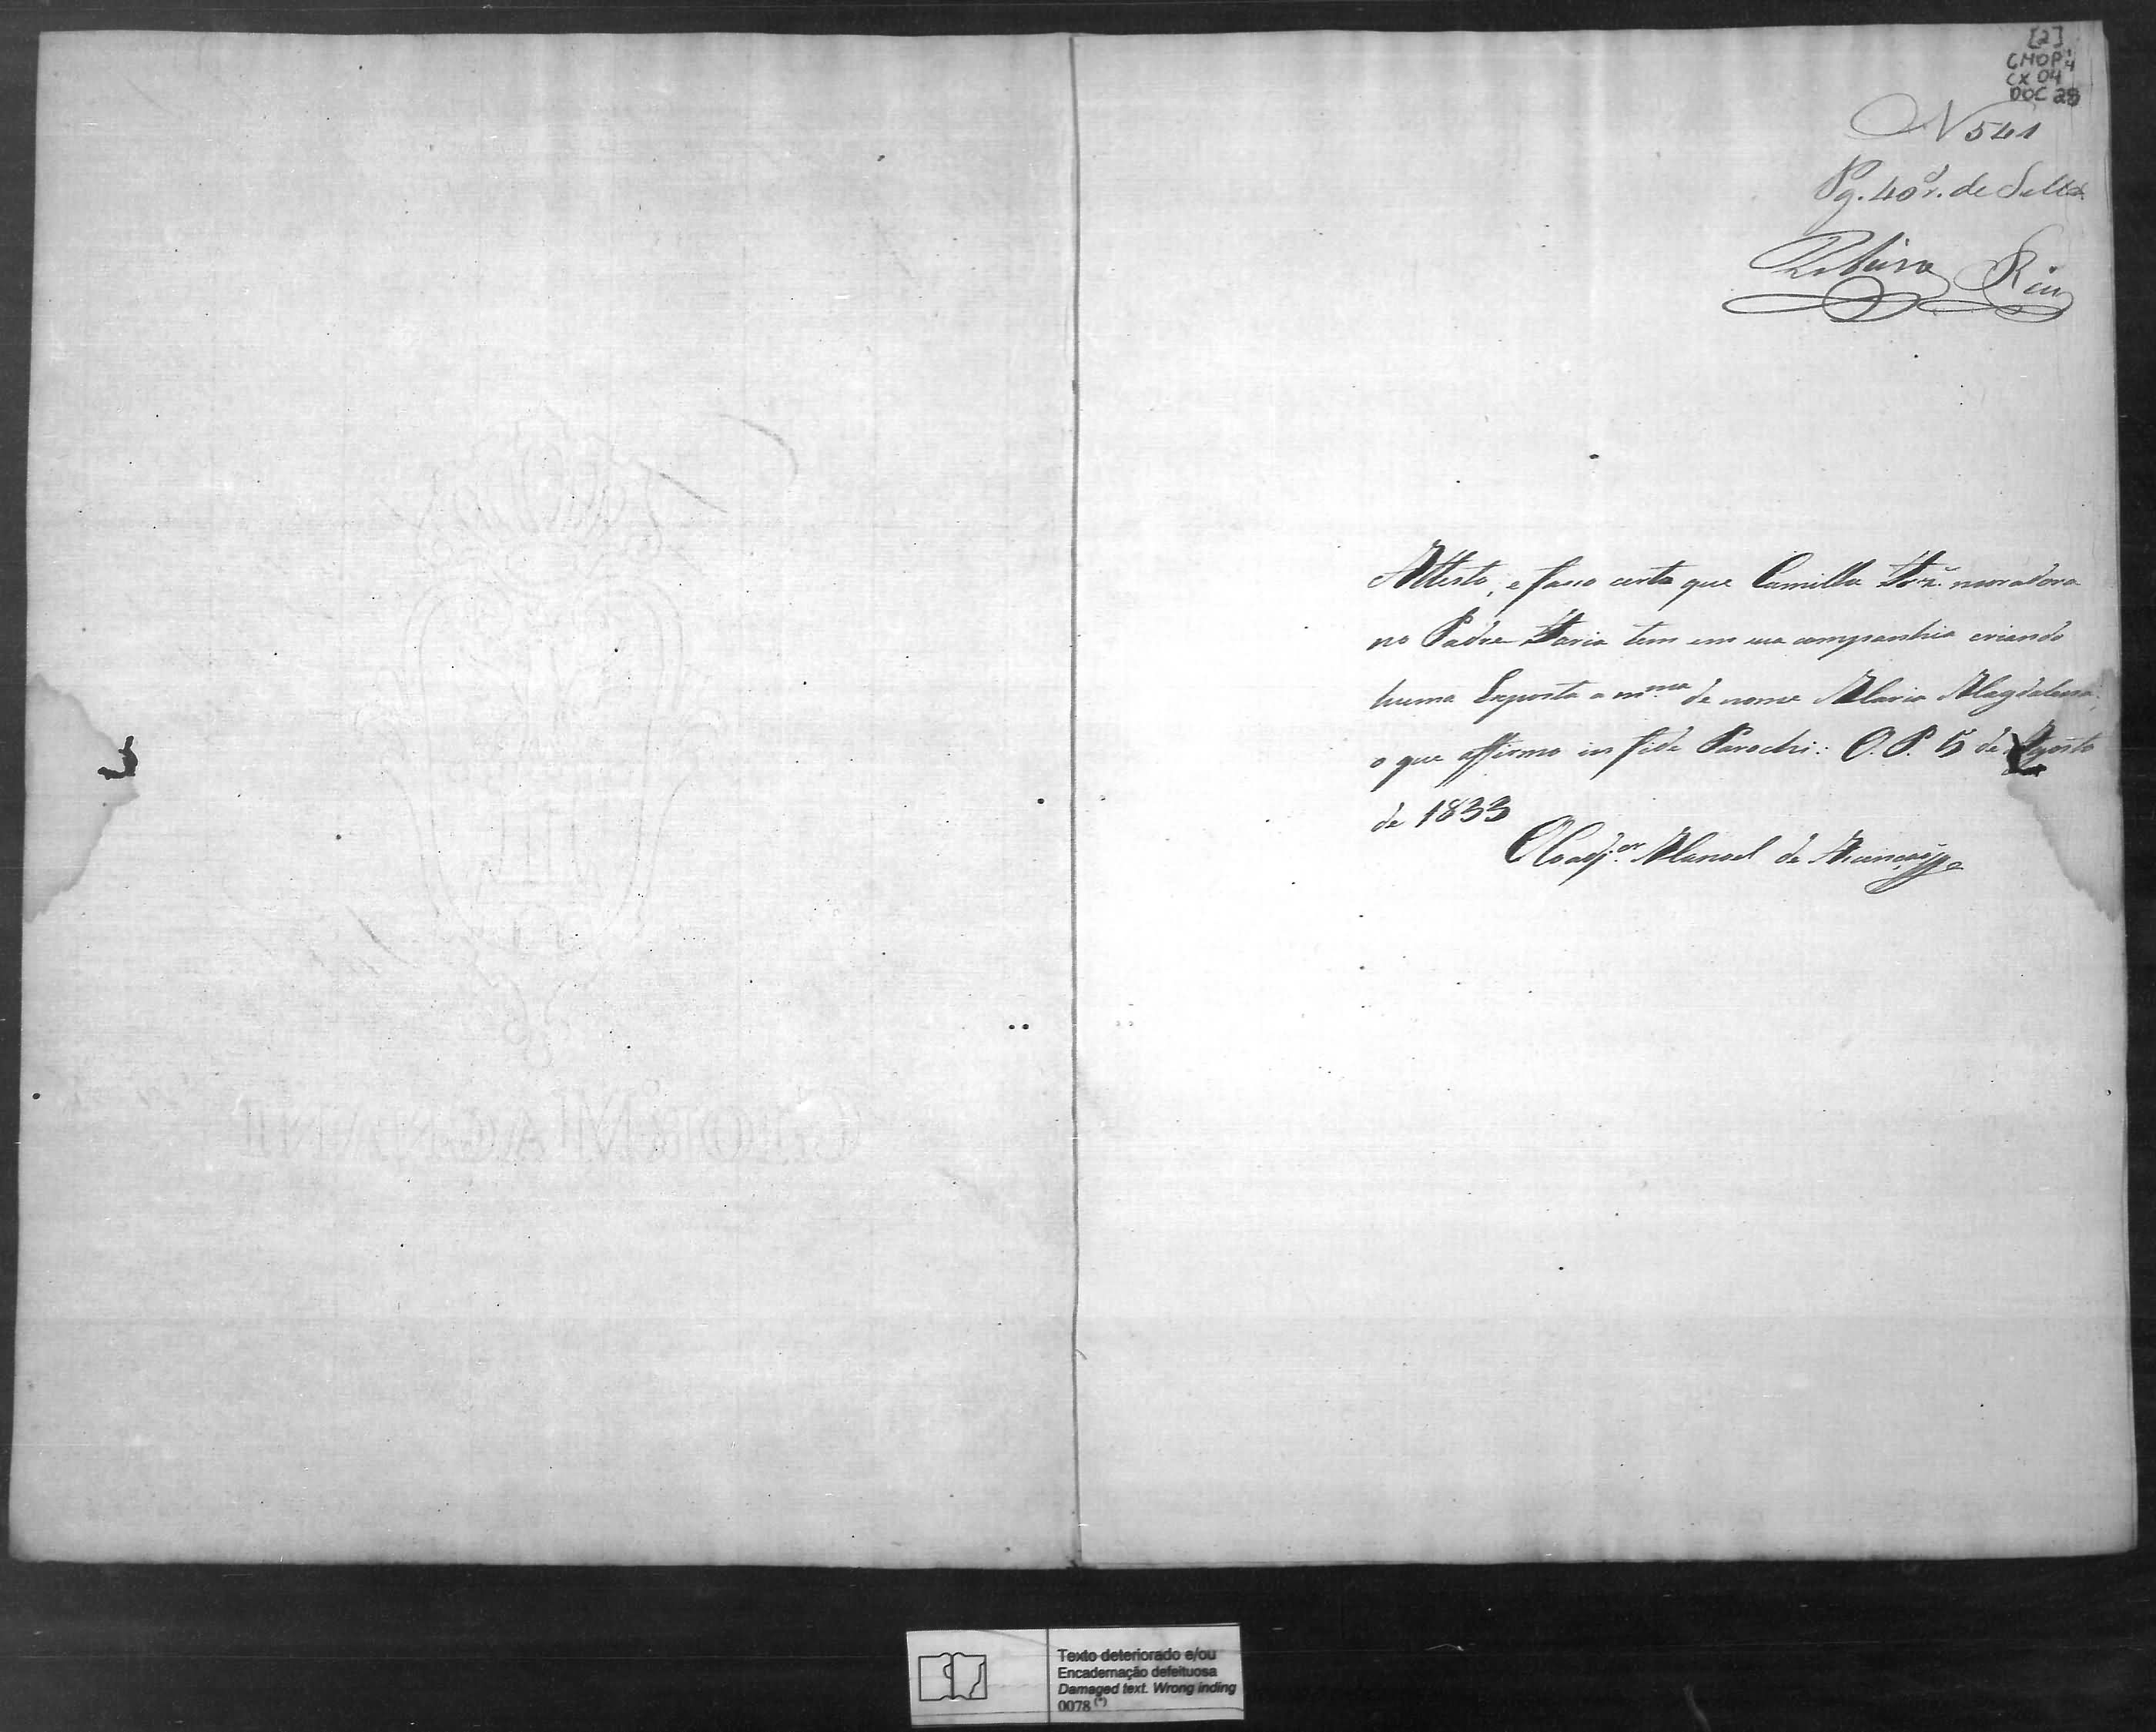 [2]
CMOP
CX 04
DOC 28
N 541
Pg. 40 r. de Sello
Ribeiro
Attesto, e fasso certo que Camilla moradora
no Padre Faria tem em sua companhia criando
huma Exposta a m.ma de nome Maria Magdalena
o que affirmo in fide Parochi: O. P. 5 de Agosto
de 1833
O Coadj.or Manoel da
GIOR MAGNANI
Texto deteriorado e/ou
Encadernação defeituosa
Damaged text. Wrong inding
0078 (*)